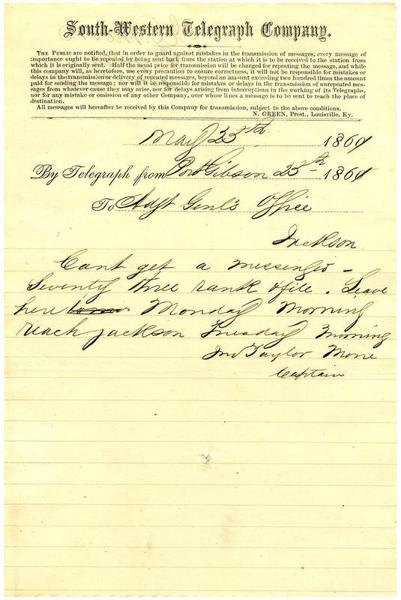 South-Western Telegraph Company.
The Public are notified, that in order to guard against mistakes in the transmission of messages, every message of
importance ought to be repeated by being sent back from the station at which it is to be received to the station from
which it is originally sent. Half the usual price for transmission will be charged for repeating the message, and while
this company will, as heretofore, use every precaution to ensure correctness, it will not be responsible for mistakes or
delays in the transmission or delivery of repeated messages, beyond an amount exceeding two hundred times the amount
paid for sending the message; nor will it be responsible for mistakes or delays in the transmission of unrepeated mess-
ages from whatever cause they may arise, nor for delays arising from interruptions in the working of its Telegraphs,
nor for any mistake or omission of any other Company, over whose lines a message is to be sent to reach the place of
destination.
All messages will hereafter be received by this Company for transmission, subject to the above conditions.
N. GREEN, Prest., Louisville, Ky.
May 23rd 1861
By Telegraph from Port Gibson 23rd 1861
To Adjt Genl's Office
Jackson
Cant get a messenger -
Seventy three rank & file. Leave
here Monday Morning
reach Jackson Tuesday Morning
Jno Taylor Moore
Captain